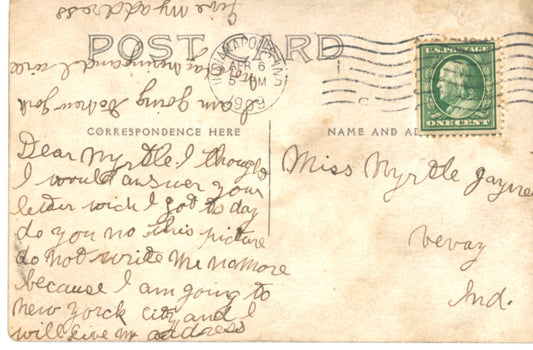 Give my address
POST CARD
INDIANAPOLIS, IND.
APR 6
5- PM
1909
U.S. POSTAGE
ONE CENT
I am going to New York
CORRESPONDENCE HERE
NAME AND AD
Dear Myrtle. I thought
I would answer your
letter wich I got to day
do you no this picture
do not write me no more
because I am going to
new yorck city and I
will give my address
Miss Myrtle Jayne
vevay
Ind.